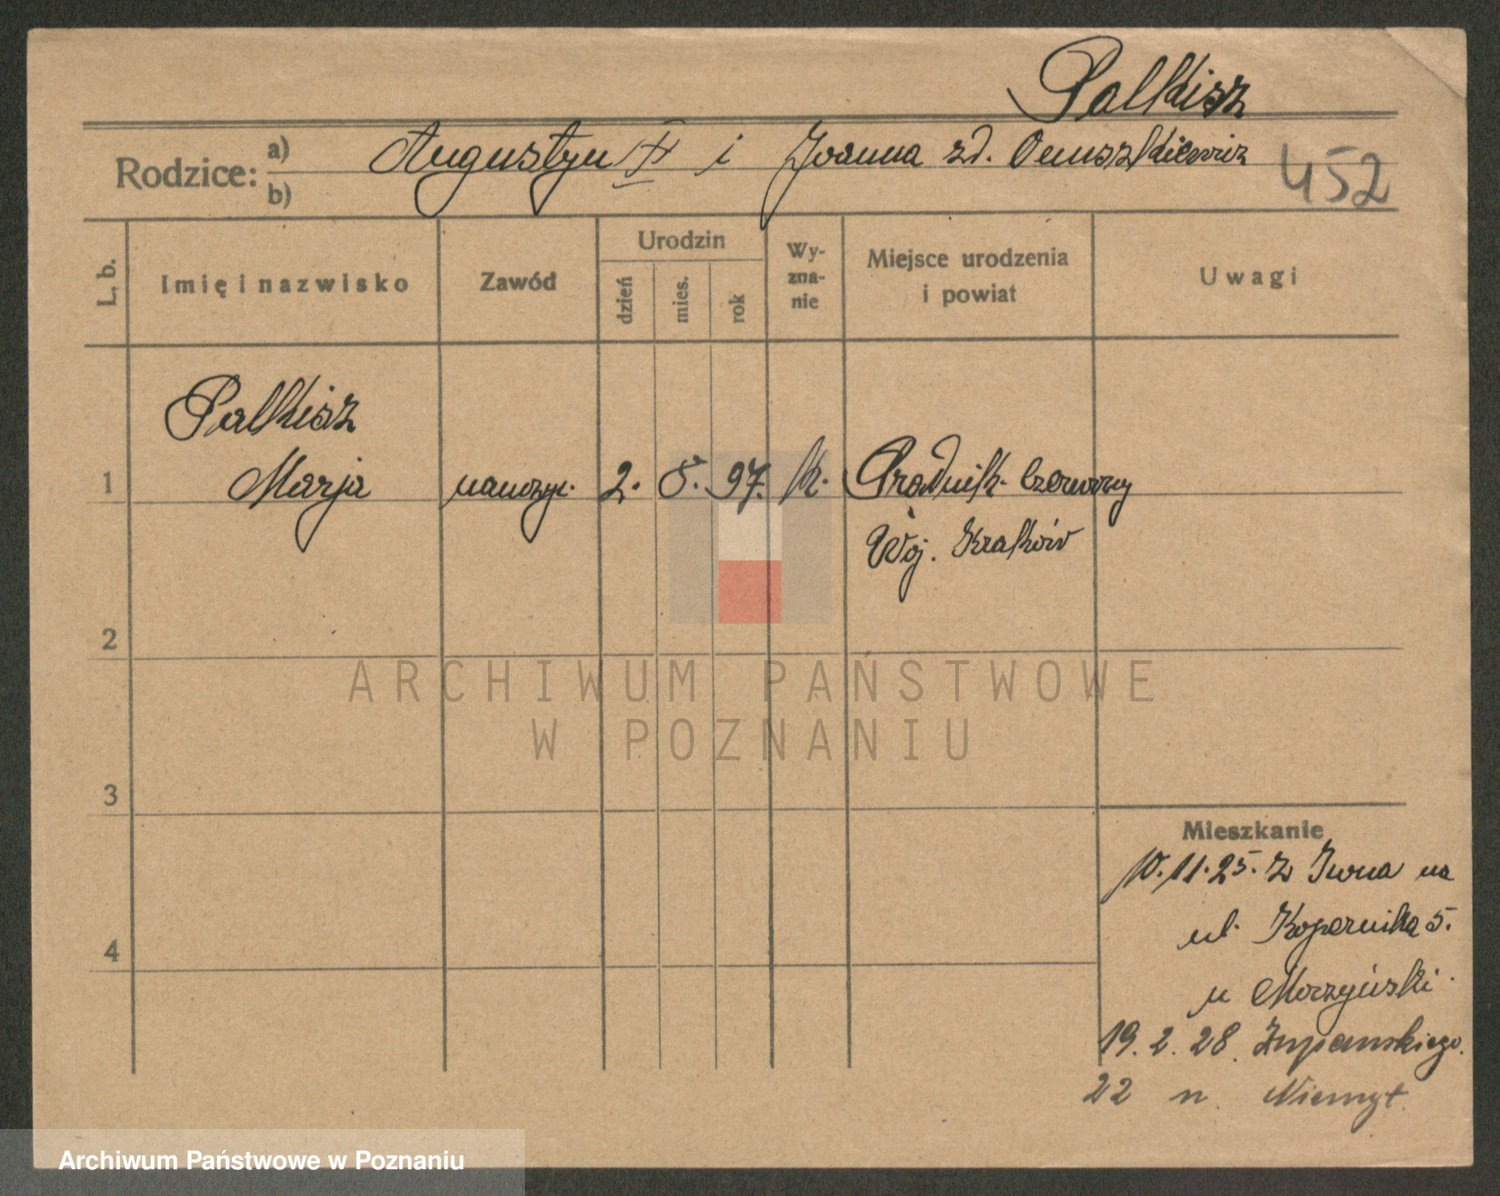 Palkisz
Rodzice: a) Augustyn i Joanna zd. Onuszkiewicz
b)
452
L. b. Imię i nazwisko Zawód Urodzin dzień mies. rok Wy-zna-nie Miejsce urodzenia i powiat Uwagi
Palkisz
1 Marja nauczyc. 2. 5. 97. k. Prądnik Czerwony
Woj. Kraków
2
ARCHIWUM PAŃSTWOWE
W POZNANIU
3
Mieszkanie
10.11.25. z na
4 ul. Kopernika 5.
u Morzyński
19. 2. 28. Żupańskiego.
22 n. Niemyt.
Archiwum Państwowe w Poznaniu